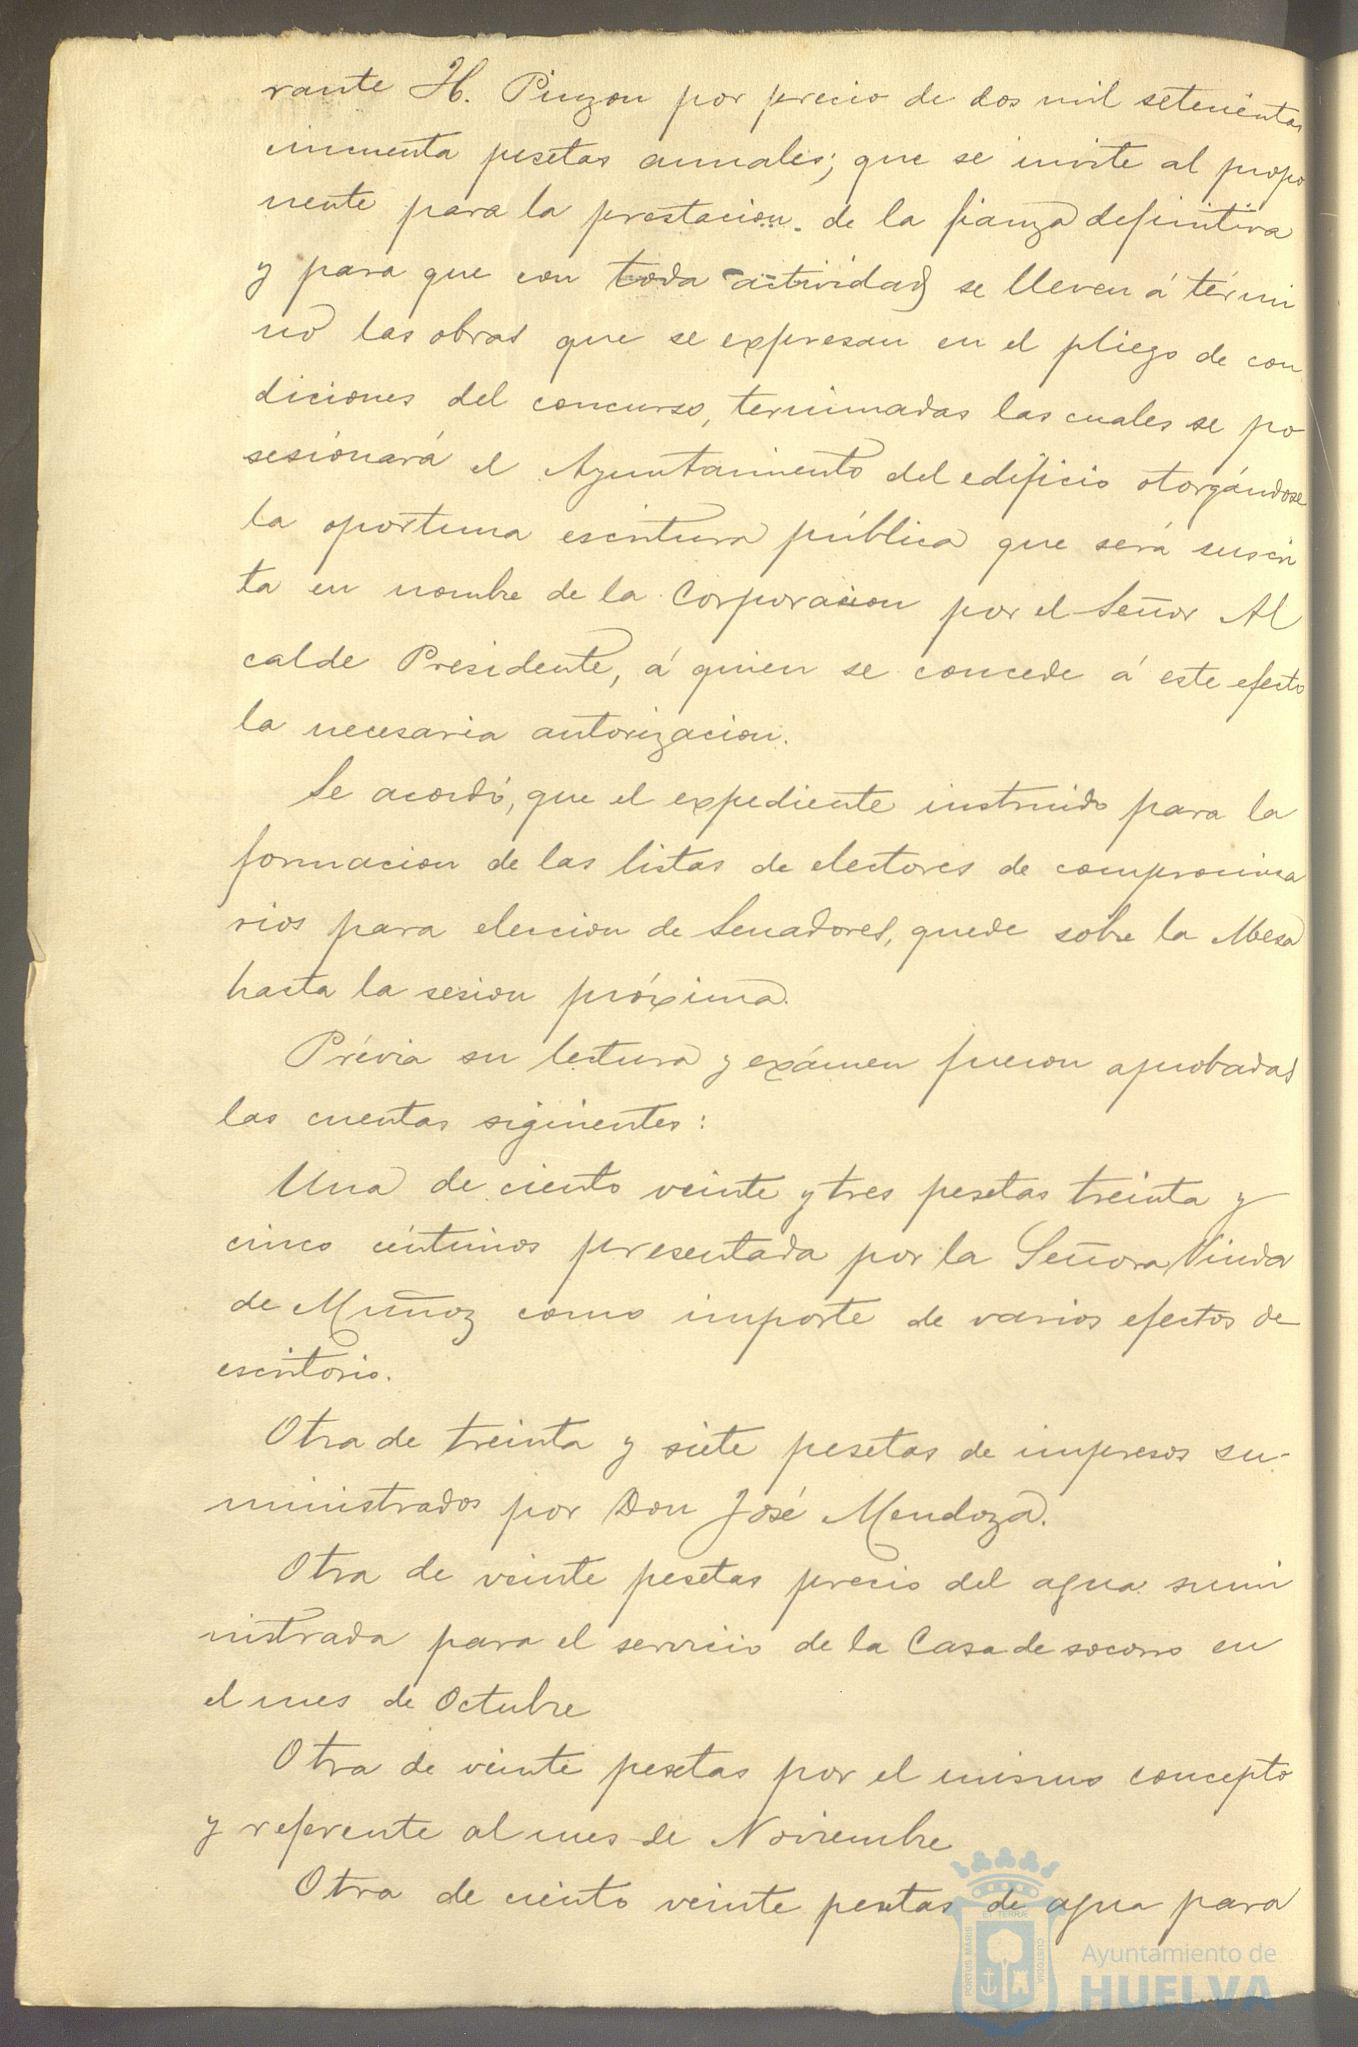 rante H. Pinzon por precio de dos mil setecientas
cincuenta pesetas anuales; que se invite al propo
nente para la prestacion de la fianza definitiva
y para que con toda actividad se lleven á térmi
no las obras que se expresan en el pliego de con
diciones del concurso, terminadas las cuales se po
sesionará el Ayuntamiento del edificio otorgándose
la oportuna escritura pública que será suscri
ta en nombre de la Corporacion por el Señor Al
calde Presidente, á quien se concede á este efecto
la necesaria autorizacion.
Se acordó, que el expediente instruido para la
formacion de las listas de electores de compromisa
rios para eleccion de Senadores, quede sobre la Mesa
hasta la sesion próxima.
Prévia su lectura y exámen fueron aprobadas
las cuentas siguientes:
Una de ciento veinte y tres pesetas treinta y
cinco céntimos presentada por la Señora Viuda
de Muñoz como importe de varios efectos de
escritorio.
Otra de treinta y siete pesetas de impresos su-
ministrados por Don José Mendoza.
Otra de veinte pesetas precio del agua sumi
nistrada para el servicio de la Casa de socorro en
el mes de Octubre
Otra de veinte pesetas por el mismo concepto
y referente al mes de Noviembre
Otra de ciento veinte pesetas de agua para
PORTUS MARIS ET TERRAE CUSTODIA
Ayuntamiento de
HUELVA